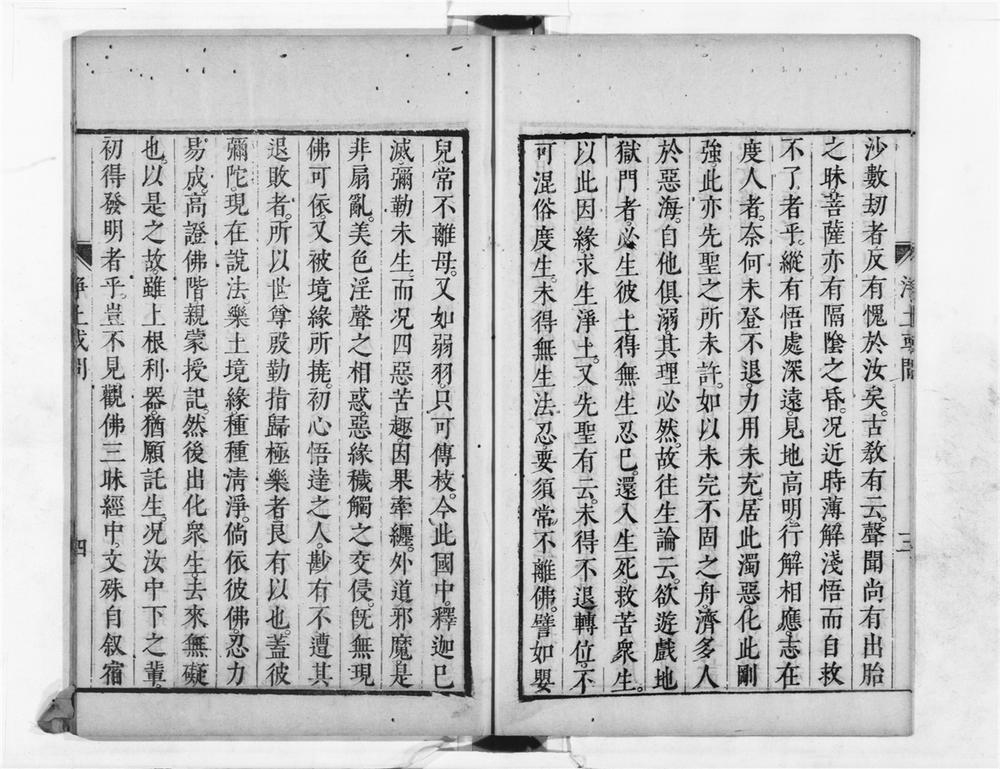 沙數劫者反有愧於汝矣。古敎有云。聲聞尚有出胎
之昧。菩薩亦有隔陰之昏。况近時薄解淺悟而自救
不了者乎。縱有悟處深遠。見地高明。行解相應。志在
度人者。奈何未登不退。力用未充。居此濁惡。化此剛
強。此亦先聖之所未許。如以未完不固之舟。濟多人
於惡海。自他俱溺。其理必然。故往生論云。欲遊戲地
獄門者。必生彼土。得無生忍已。還入生死。救苦衆生。
以此因緣。求生淨土。又先聖有云。未得不退轉位。不
可混俗度生。未得無生法忍。要須常不離佛。譬如嬰
淨土或問
三
兒常不離母。又如弱羽。只可傳枝。今此國中。釋迦已
滅。彌勒未生。而况四惡苦趣。因果牽纏。外道邪魔。是
非扇亂。美色淫聲之相惑。惡緣穢觸之交侵。旣無現
佛可依。又被境緣所撓。初心悟達之人。尠有不遭其
退敗者。所以世尊殷勤指歸極樂者。良有以也。蓋彼
彌陀。現在說法。樂土境緣種種清淨。倘依彼佛。忍力
易成。高證佛階。親蒙授記。然後出化衆生。去來無礙
也。以是之故。雖上根利器。猶願託生。况汝中下之輩。
初得發明者乎。豈不見觀佛三昧經中。文殊自叙宿
淨土或問
四